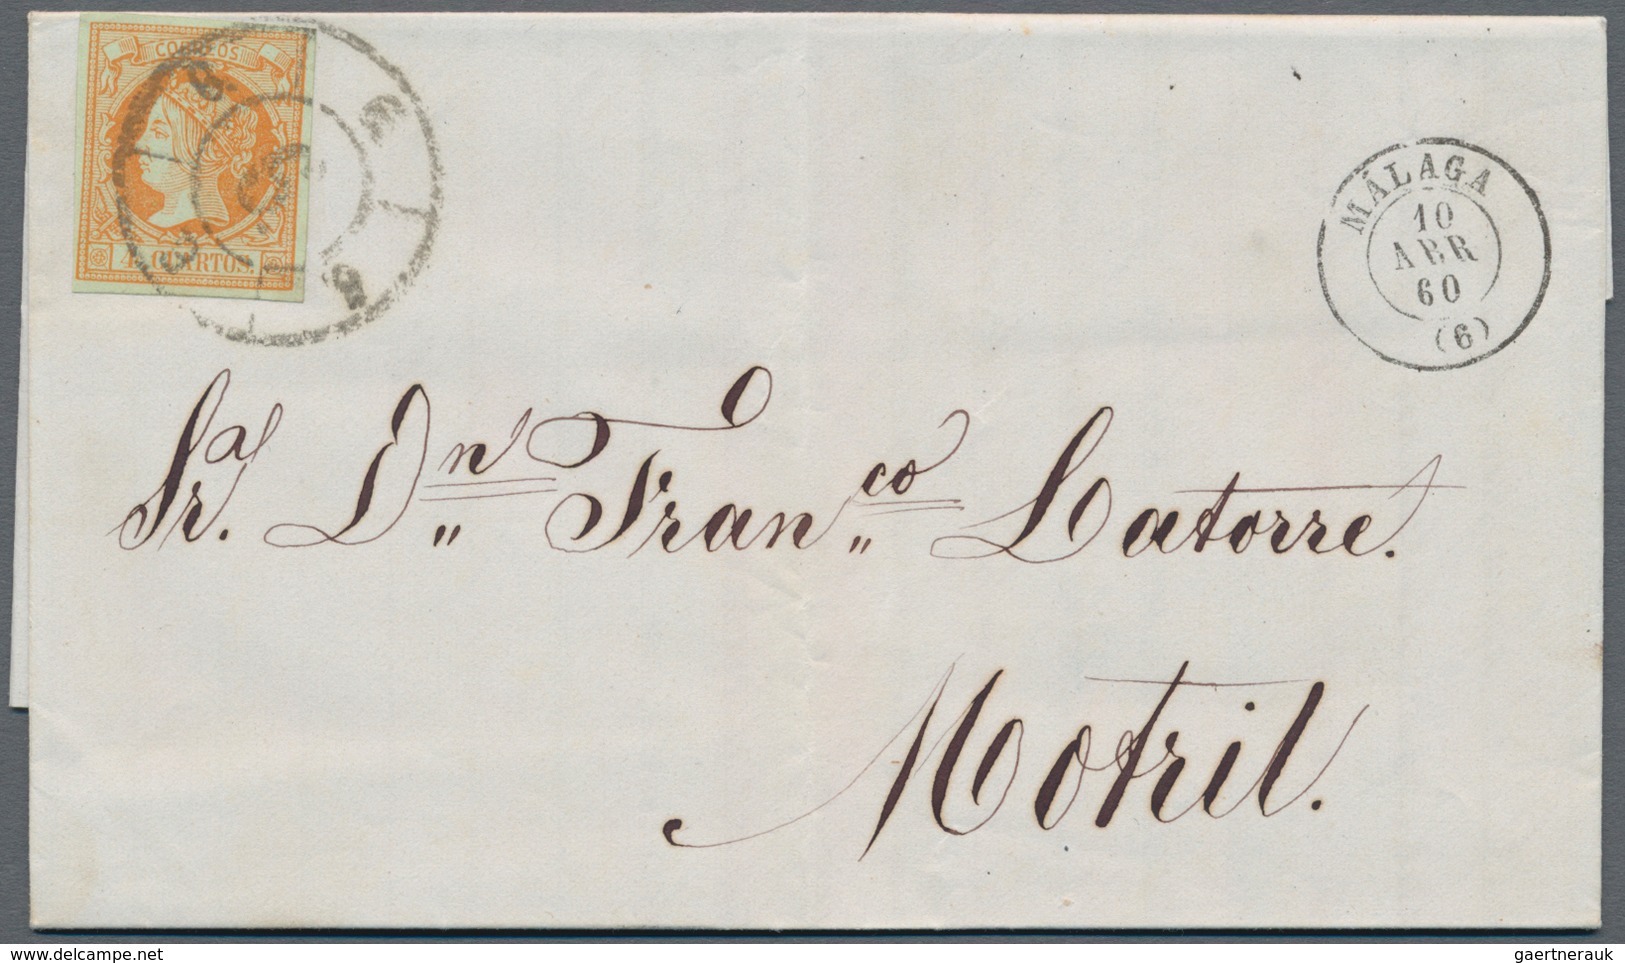 CORREOS
4 CUARTOS.
MÁLAGA
10
ABR
60
(6)
Sr. Dn. Franco. Latorre.
Motril.
delcampe.net
gaertnerauk